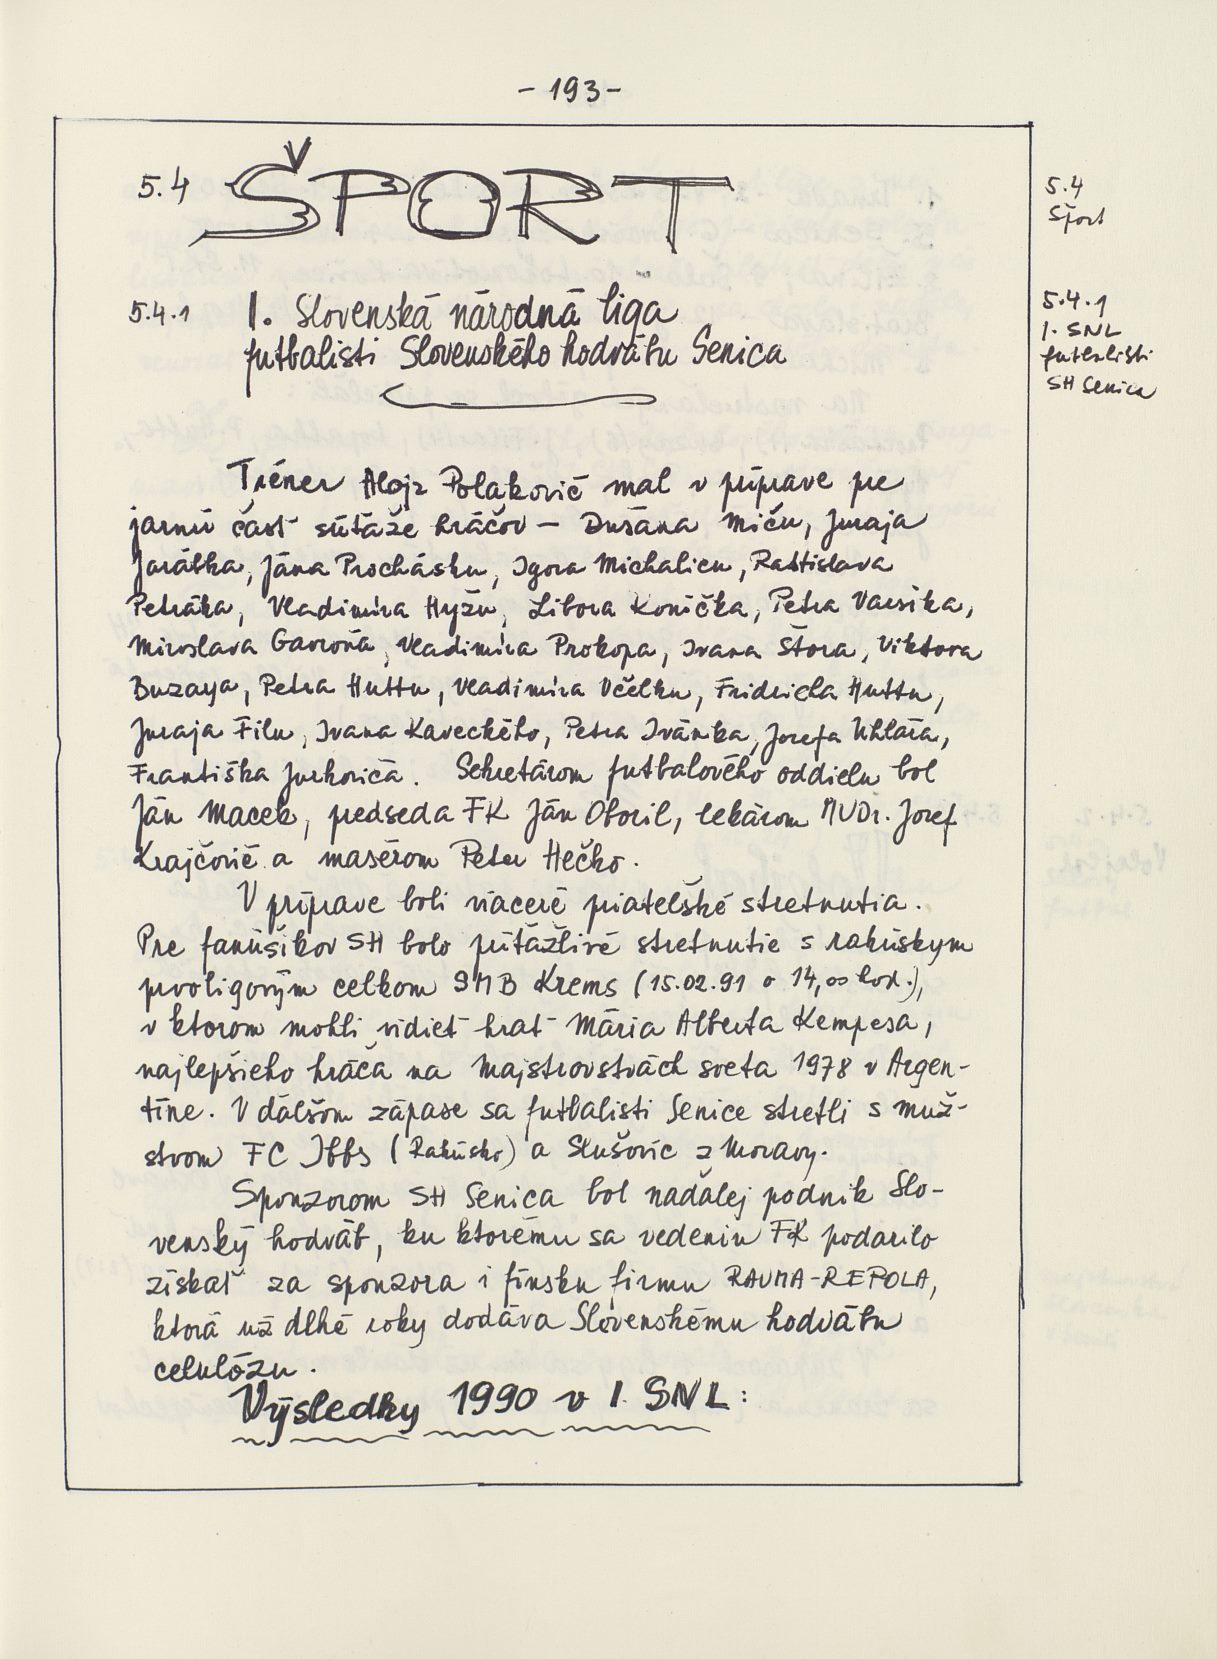 - 193 -
5.4 ŠPORT
5.4
Šport
5.4.1 I. Slovenská národná liga
futbalisti Slovenského hodvábu Senica
5.4.1
I. SNL
futbalisti
SH Senica
Tréner Alojz Polakovič mal v príprave pre
jarnú časť súťaže hráčov – Dušana Miču, Juraja
Jarábka, Jána Prochásku, Igora Michalicu, Rastislava
Petráka, Vladimíra Hyžu, Libora Koníčka, Petra Varsika,
Miroslava Gavroňa, Vladimíra Prokopa, Ivana Štora, Viktora
Buzaya, Petra Huttu, Vladimíra Včelku, Fridricha Huttu,
Juraja Filu, Ivana Kaveckého, Petra Ivánka, Jozefa Uhlára,
Františka Jurkoviča. Sekretárom futbalového oddielu bol
Ján Macek, predseda FK Ján Oboril, lekárom MUDr. Jozef
Krajčovič a masérom Peter Hečko.
V príprave boli viaceré priateľské stretnutia.
Pre fanúšikov SH bolo príťažlivé stretnutie s rakúskym
prvoligovým celkom SMB Krems (15.02.91 o 14,00 hod.),
v ktorom mohli vidieť hrať Mária Alberta Kempesa,
najlepšieho hráča na Majstrovstvách sveta 1978 v Argen-
tíne. V ďalšom zápase sa futbalisti Senice stretli s muž-
stvom FC Ibbs (Rakúsko) a Slušovíc z Moravy.
Sponzorom SH Senica bol naďalej podnik Slo-
venský hodváb, ku ktorému sa vedeniu FK podarilo
získať za sponzora i fínsku firmu RAUMA-REPOLA,
ktorá už dlhé roky dodáva Slovenskému hodvábu
celulózu.
Výsledky 1990 v I. SNL: